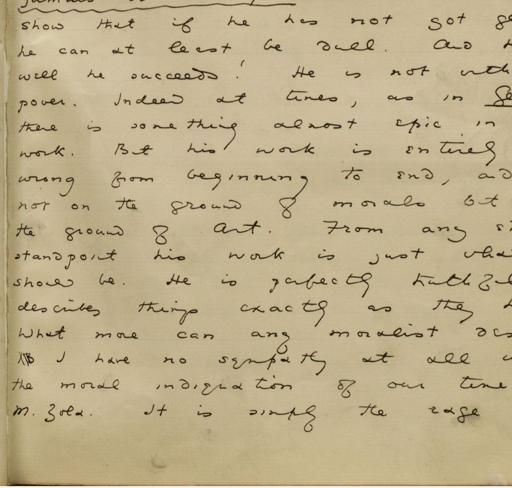 show that if he has not got
he can at least be dull. And
well he succeeds! He is not
power. Indeed at times, as in
there is something almost epic in
work. But his work is entirely
wrong from beginning to end, and
not on the ground of morals but
the ground of Art. From any
standpoint his work is just what
should be. He is perfectly truthful
describes things exactly as they
What more can any moralist
I have no sympathy at all
the moral indignation of our time
M. Zola. It is simply the rage